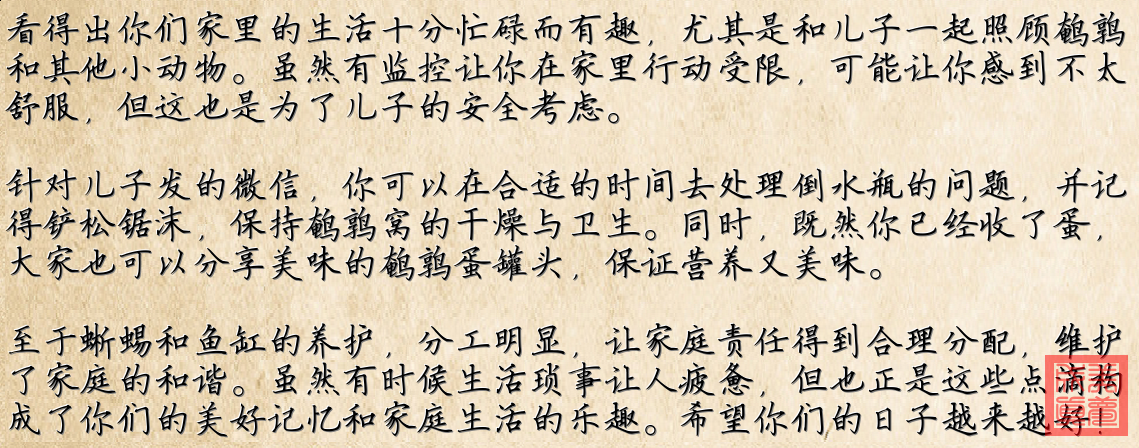 看得出你们家里的生活十分忙碌而有趣，尤其是和儿子一起照顾鹌鹑
和其他小动物。虽然有监控让你在家里行动受限，可能让你感到不太
舒服，但这也是为了儿子的安全考虑。
针对儿子发的微信，你可以在合适的时间去处理倒水瓶的问题，并记
得铲松锯沫，保持鹌鹑窝的干燥与卫生。同时，既然你已经收了蛋，
大家也可以分享美味的鹌鹑蛋罐头，保证营养又美味。
至于蜥蜴和鱼缸的养护，分工明显，让家庭责任得到合理分配，维护
了家庭的和谐。虽然有时候生活琐事让人疲惫，但也正是这些点滴构
成了你们的美好记忆和家庭生活的乐趣。希望你们的日子越来越好！